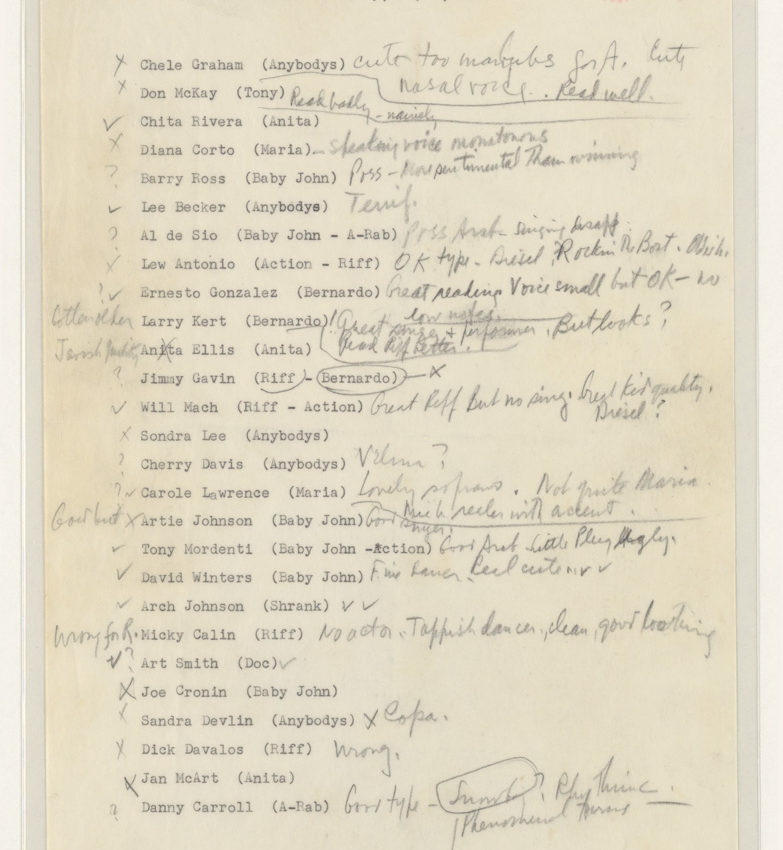 X Chele Graham (Anybodys) cute too for A. Cute
nasal voice. Read well.
X Don McKay (Tony) Read badly - naively
✓ Chita Rivera (Anita)
X Diana Corto (Maria) - speaking voice monotonous
? Barry Ross (Baby John) Poss - More sentimental than winning
✓ Lee Becker (Anybodys) Terrif.
? Al de Sio (Baby John - A-Rab) Poss Arab - singing
X Lew Antonio (Action - Riff) OK type - Diesel, Rockin the Boat.
? ✓ Ernesto Gonzalez (Bernardo) Great reading Voice small but OK - no
low notes.
Larry Kert (Bernardo)! Great singer + performer. But looks?
Read Riff better.
X Anita Ellis (Anita)
? Jimmy Gavin (Riff - Bernardo) - X
✓ Will Mach (Riff - Action) Great Riff but no sing. Great kid quality.
Diesel?
X Sondra Lee (Anybodys)
? Cherry Davis (Anybodys) Velma?
? ✓ Carole Lawrence (Maria) Lovely soprano. Not quite Maria.
Much with accent.
Good but X Artie Johnson (Baby John) Good singer.
✓ Tony Mordenti (Baby John -Action) Good Arab Little Plug Ugly.
✓ David Winters (Baby John) Fine dancer. Real cute. ✓ ✓
✓ Arch Johnson (Shrank) ✓ ✓
Wrong for R. Micky Calin (Riff) No actor. dancer, clean, good looking
✓? Art Smith (Doc) ✓
X Joe Cronin (Baby John)
X Sandra Devlin (Anybodys) X Copa.
X Dick Davalos (Riff) Wrong.
X Jan McArt (Anita)
? Danny Carroll (A-Rab) Good type - ?
Phenomenal